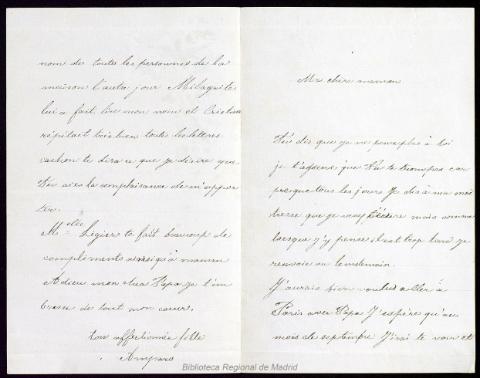 Ma chère maman
Tu dis que je ne pense plus à toi
je t'assure que tu te trompes car
presque tous les jours je dis à ma maî
tresse que je veux t'écrire mais comme
lorsque j'y pense il est trop tard je
renvoie au lendemain.
J'aurais bien voulu aller à
Paris avec Papa J'espère qu'au
mois de septembre J'irai te voir et
nom de toutes les personnes de la
maison l'autre jour Milagrete
lui a fait lire mon nom et Cristina
répétait très bien toute les lettres
te dira ce que je désire que
tu aies la complaisance de m'appor
ter.
Melle Légier te fait beaucoup de
compléments ainsi qu'à maman
Adieu mon cher Papa je t'em
brasse de tout mon cœur.
ton affectionnée fille
Amparo
Biblioteca Regional de Madrid